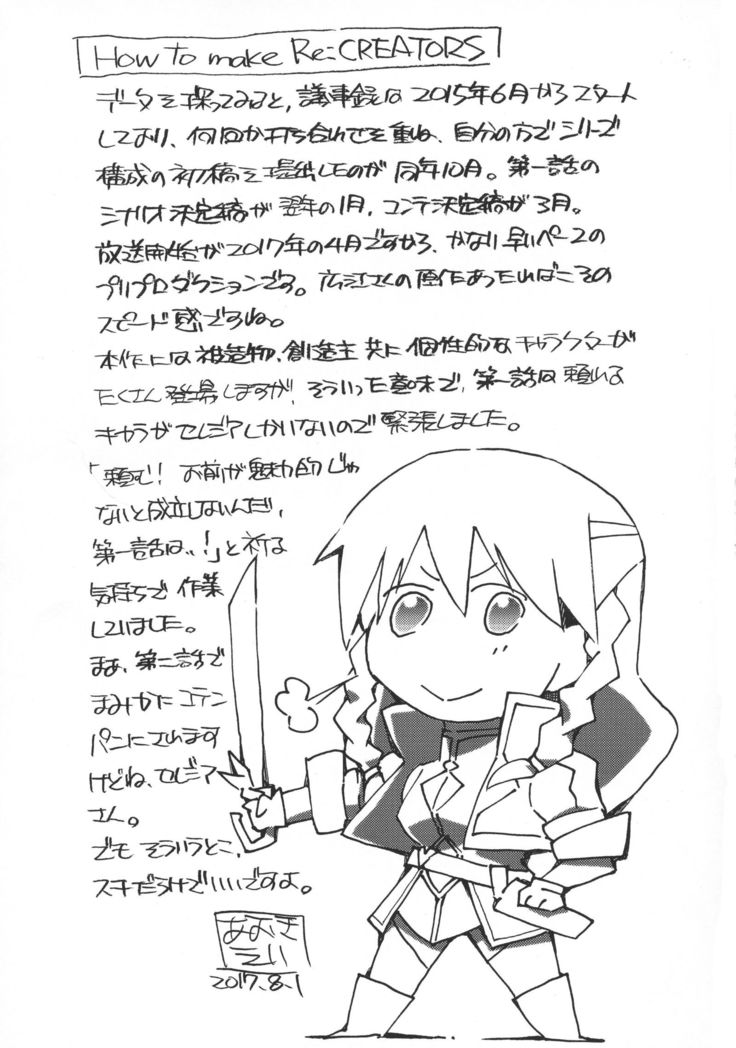 How to make Re:CREATORS
データを探ってみると、議事録は2015年6月からスタート
しており、何回か打ち合わせを重ね、自分の方でシリーズ
構成の初稿を提出したのが同年10月。第一話の
シナリオ決定稿が翌年の1月、コンテ決定稿が3月。
放送開始が2017年の4月ですから、かなり早いペースの
プリプロダクションです。広江さんの原作あったればこその
スピード感ですね。
本作には被造物、創造主共に個性的なキャラクターが
たくさん登場しますが、そういった意味で、第一話は頼れる
キャラがセレジアしかいないので緊張しました。
「頼む!お前が魅力的じゃ
ないと成立しないんだ、
第一話は、、!」と祈る
気持ちで作業
していました。
まあ、第二話で
まみかにコテン
パンにされます
けどね、セレジア
さん。
でもそういうとこ、
スキだらけでいいですよ。
あおき
えい
2017.8.1